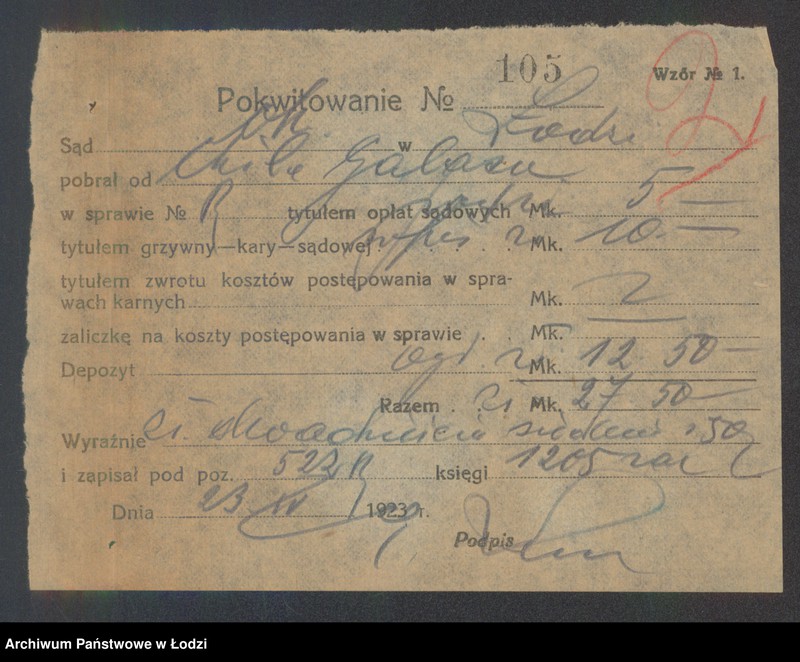 105
Wzór № 1.
Pokwitowanie №
Sąd Okr. w Łodzi
pobrał od Chila Galasa
w sprawie № R tytułem opłat sądowych Mk. 5 —
tytułem grzywny—kary—sądowej wpis zł Mk. 10 —
tytułem zwrotu kosztów postępowania w spra-
wach karnych Mk. 2
zaliczkę na koszty postępowania w sprawie Mk. —
Depozyt ogł. zł. Mk. 12 50 —
Razem zł Mk. 27 50
Wyraźnie zł. dwadzieścia siedem 50
i zapisał pod poz. 522 R księgi 1205
Dnia 23 1923 r.
Podpis
Archiwum Państwowe w Łodzi